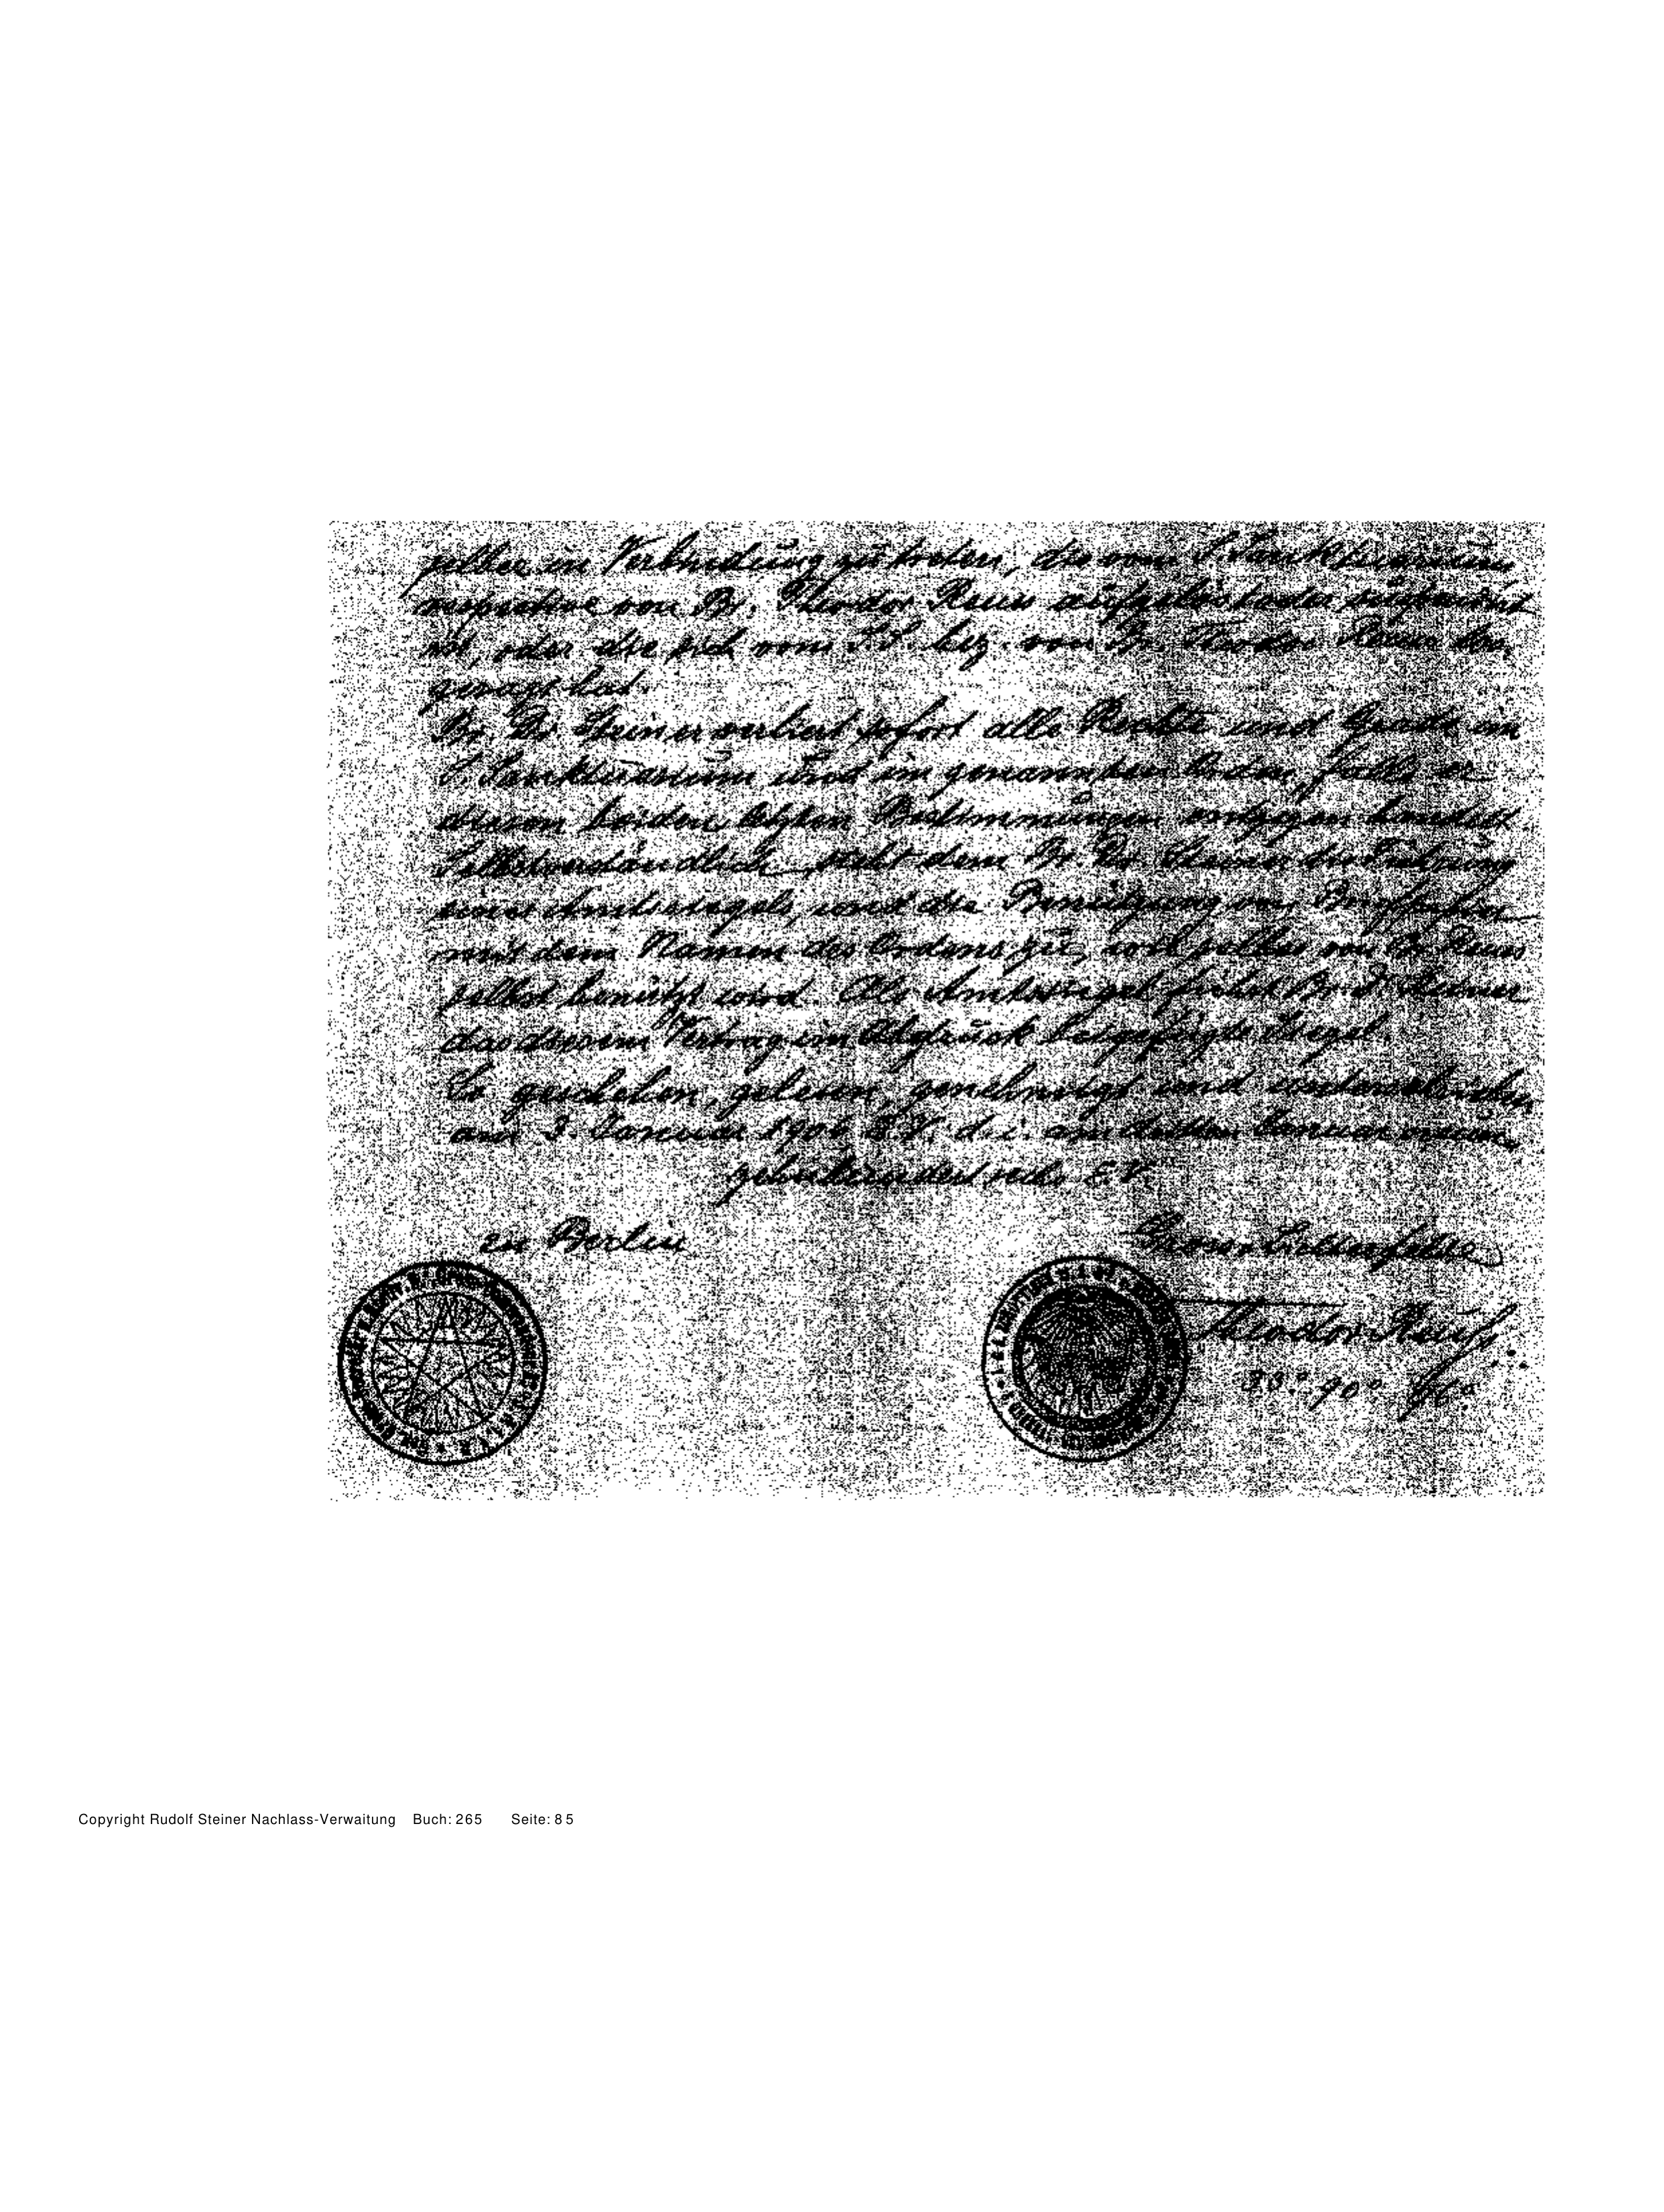 selber in Verbindung zu treten, die vom S. Sanktuarium
respektive von Br. Theodor Reuss aufgelöst oder
ist, oder die sich vom S.S. bez. von Br. Theodor Reuss los
gesagt hat.
Br. Dr. Steiner verliert sofort alle Rechte und Grade im
S. Sanktuarium und im genannten Orden, falls er
diesen beiden letzten Bestimmungen entgegen handelt.
Selbstverständlich steht dem Br. Dr. Steiner die Führung
eines Amtssiegels, und die Benützung von
mit dem Namen des Ordens zu, wie selber von Br. Reuss
selbst benützt wird. Als Amtssiegel führt Br. Dr. Steiner
das diesem Vertrag im Abdruck beigefügte Siegel.
So geschehen, gelesen, genehmigt und unterschrieben
am 3. Januar 1906 E.V. d.i. am dritten Januar neun
zehnhundert sechs E.V.
zu Berlin
Gross-Lichterfelde
Theodor Reuss
33° 90° 96°
Copyright Rudolf Steiner Nachlass-Verwaitung Buch: 265 Seite: 85